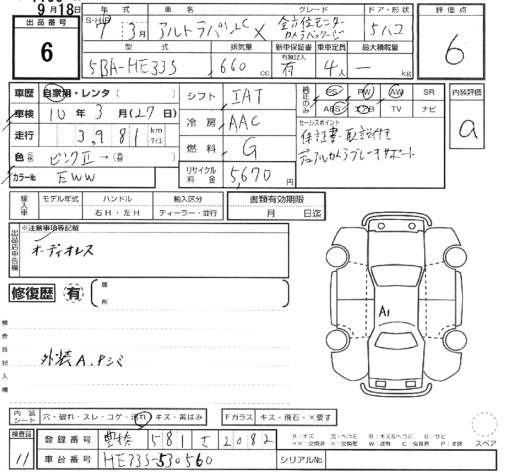 9月18日
出品番号
6
年式 車名 グレード ドア・形状
S・H・R 7年 3月 アルトラパンLC X 全方位モニター カメラパッケージ 5ハコ
評価点
6
型式 排気量 新車保証書 乗車定員 最大積載量
5BA-HE33S 660 cc 有無記入 有 4人 — kg
車歴 自家用・レンタ( )
車検 10年 3月(27日)
走行 3,981 km マイル
色 (元色) ピンクⅡ→( 替)
カラーNo EWW
シフト IAT
冷房 AAC
燃料 G
リサイクル料金 5,670
純正のみ PS PW AW SR
ABS エアB TV ナビ
セールスポイント
保証書・取説付き
デュアルカメラブレーキサポート
内装評価
a
輸入車 モデル年式 ハンドル 輸入区分
右H・左H ディーラー・並行
書類有効期限
月 日迄
出品店申告欄
※注意事項等記載
オーディオレス
修復歴 有 箇所
検査員記入欄
外装A、Pシミ
A1
内装シート 穴・破れ・スレ・コゲ・汚れ・キズ・黄ばみ
Fガラス キズ・飛石・×要す
検査員
11
登録番号 豊橋 581 さ 2082
車台番号 HE33S-530560
シリアルNo.
A:キズ U:ヘコミ B:キズ&ヘコミ S:サビ
スペア